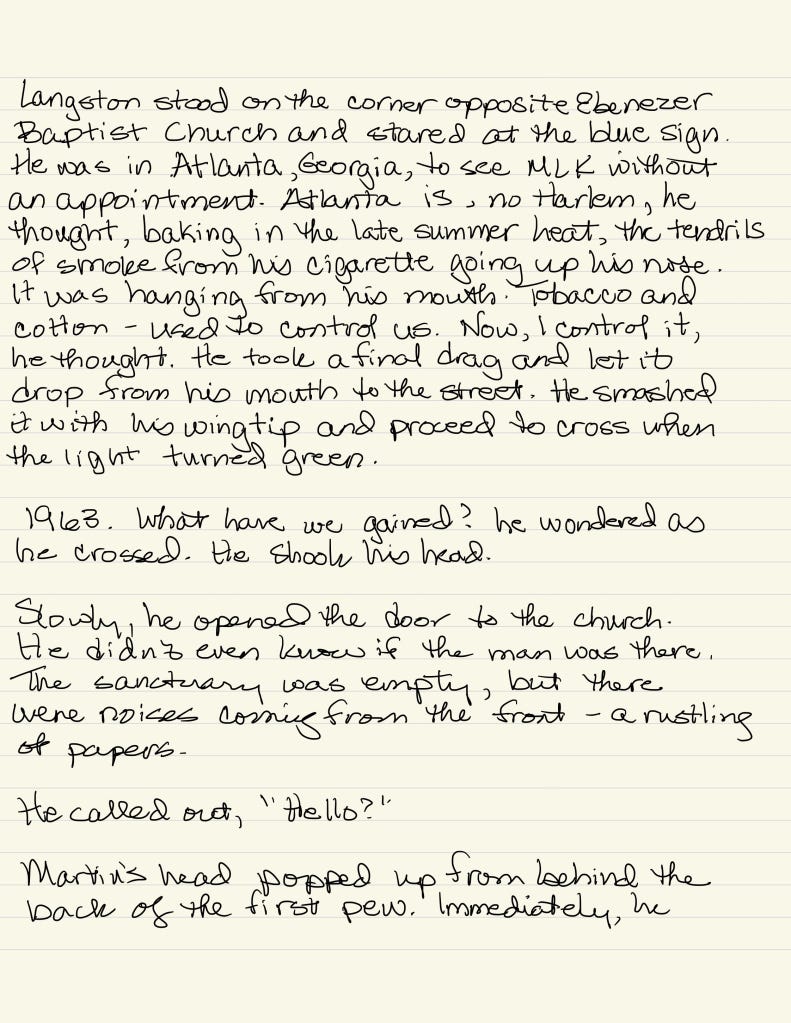 Langston stood on the corner opposite Ebenezer
Baptist Church and stared at the blue sign.
He was in Atlanta, Georgia, to see MLK without
an appointment. Atlanta is, no Harlem, he
thought, baking in the late summer heat, the tendrils
of smoke from his cigarette going up his nose.
It was hanging from his mouth. Tobacco and
cotton - used to control us. Now, I control it,
he thought. He took a final drag and let it
drop from his mouth to the street. He smashed
it with his wingtip and proceed to cross when
the light turned green.
1963. What have we gained? he wondered as
he crossed. He shook his head.
Slowly, he opened the door to the church.
He didn't even know if the man was there.
The sanctuary was empty, but there
were noises coming from the front - a rustling
of papers.
He called out, "Hello?"
Martin's head popped up from behind the
back of the first pew. Immediately, he